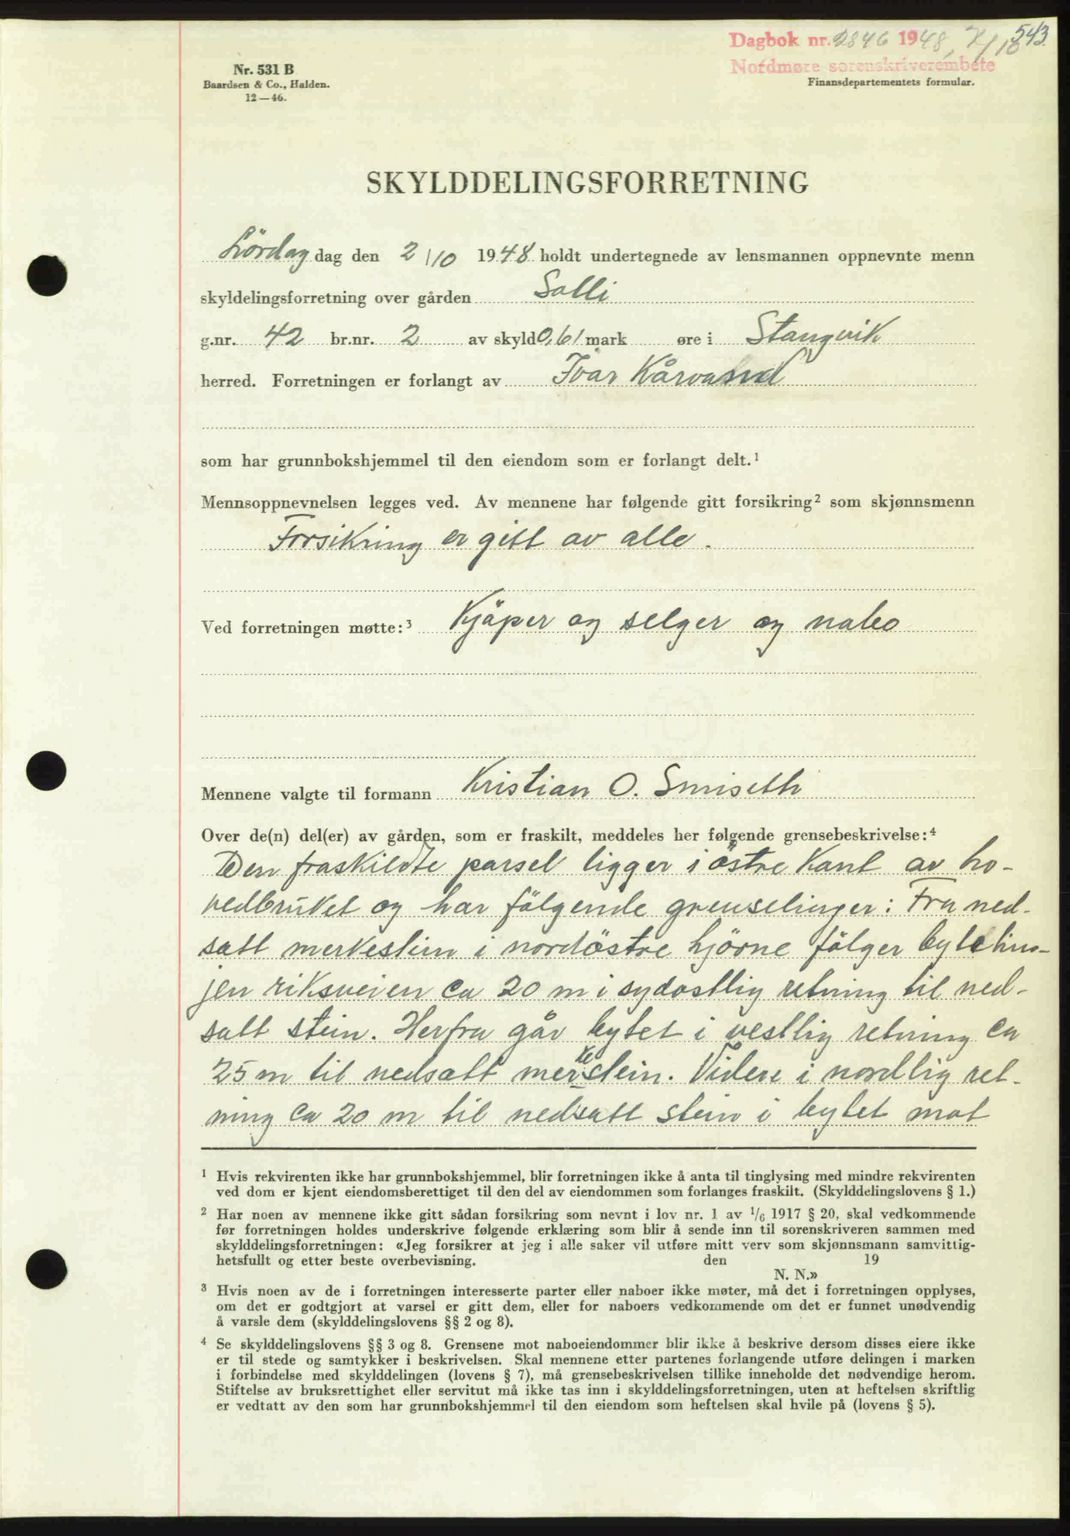 543
Dagbok nr. 2846 1948, 7/10
Nordmøre sorenskriverembete
Nr. 531 B
Baardsen & Co., Halden.
12—46.
Finansdepartementets formular.
SKYLDDELINGSFORRETNING
Lördag dag den 2/10 1948 holdt undertegnede av lensmannen oppnevnte menn
skyldelingsforretning over gården Solli
g.nr. 42 br.nr. 2 av skyld 0,61 mark øre i Stangvik
herred. Forretningen er forlangt av Ivar Kårvand
som har grunnbokshjemmel til den eiendom som er forlangt delt.¹
Mennsoppnevnelsen legges ved. Av mennene har følgende gitt forsikring² som skjønnsmenn
Forsikring er gitt av alle.
Ved forretningen møtte:³ Kjöper og selger og nabo
Mennene valgte til formann Kristian O. Smiseth
Over de(n) del(er) av gården, som er fraskilt, meddeles her følgende grensebeskrivelse:⁴
Den fraskildte parsel ligger i östre kant av ho-
vedbruket og har fölgende grenselinjer: Fra ned-
satt merkestein i nordöstre hjörne fölger bytelin-
jen riksveien ca 20 m i sydostlig retning til ned-
satt stein. Herfra går bytet i vestlig retning ca
25 m til nedsatt merkestein. Videre i nordlig ret-
ning ca 20 m til nedsatt stein i bytet mot
¹ Hvis rekvirenten ikke har grunnbokshjemmel, blir forretningen ikke å anta til tinglysing med mindre rekvirenten
ved dom er kjent eiendomsberettiget til den del av eiendommen som forlanges fraskilt. (Skylddelingslovens § 1.)
² Har noen av mennene ikke gitt sådan forsikring som nevnt i lov nr. 1 av 1/6 1917 § 20, skal vedkommende
før forretningen holdes underskrive følgende erklæring som blir å sende inn til sorenskriveren sammen med
skylddelingsforretningen: «Jeg forsikrer at jeg i alle saker vil utføre mitt verv som skjønnsmann samvittig-
hetsfullt og etter beste overbevisning. den 19
N. N.»
³ Hvis noen av de i forretningen interesserte parter eller naboer ikke møter, må det i forretningen opplyses,
om det er godtgjort at varsel er gitt dem, eller for naboers vedkommende om det er funnet unødvendig
å varsle dem (skylddelingslovens §§ 2 og 8).
⁴ Se skylddelingslovens §§ 3 og 8. Grensene mot naboeiendommer blir ikke å beskrive dersom disses eiere ikke
er til stede og samtykker i beskrivelsen. Skal mennene etter partenes forlangende utføre delingen i marken
i forbindelse med skylddelingen (lovens § 7), må grensebeskrivelsen tillike inneholde det nødvendige herom.
Stiftelse av bruksrettighet eller servitut må ikke tas inn i skylddelingsforretningen, uten at heftelsen skriftlig
er vedtatt av den som har grunnbokshjemmel til den eiendom som heftelsen skal hvile på (lovens § 5).